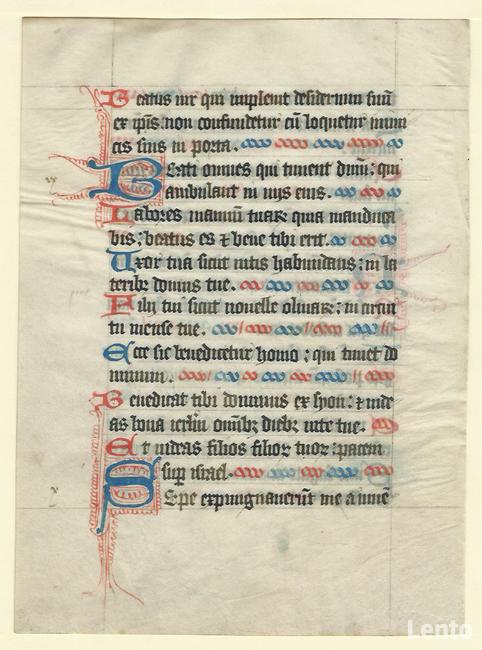 Beatus uir qui impleuit desiderium suū
ex ipīs: non confundetur cū loquetur inimi
cis suis in porta.
Beati omnes qui timent dnm̄: qui
ambulant in uijs eius.
Labores manuū tuaꝝ quia manduca
bis: beatus es ⁊ bene tibi erit.
Uxor tua sicut uitis habundans: in la
teribꝫ domus tue.
Filij tui sicut nouelle oliuaꝝ: in circui
tu mense tue.
Ecce sic benedicetur homo: qui timet do
minum.
Benedicat tibi dominus ex syon: ⁊ uide
as bona ierlm̄ omībꝫ diebꝫ uite tue.
Et uideas filios filioꝝ tuoꝝ: pacem
sup̄ israel.
Sepe expugnauerūt me a iuuē
Lento